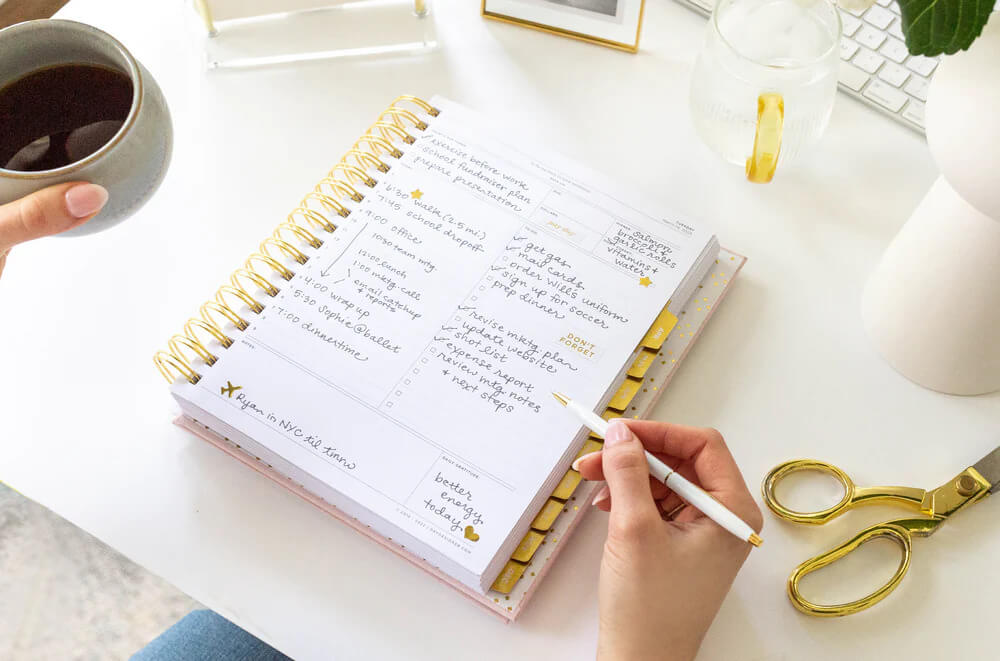 TUESDAY
exercise before work
school fundraiser plan
prepare presentation
6:30 walk (2.5 mi.)
7:45 school dropoff
9:00 office
10:30 team mtg.
12:00 lunch
1:00 mktg. call
email catchup
+ reports
4:00 wrap up
5:30 Sophie@ballet
7:00 dinnertime
pay day
salmon,
broccoli &
garlic rolls
vitamins +
water
get gas
mail cards
order Will's uniform
sign up for soccer
prep dinner
revise mktg. plan
update website
shot list
expense report
review mtg. notes
& next steps
DON'T
FORGET
NOTES
Ryan in NYC til tmrw
DAILY GRATITUDE
better
energy
today